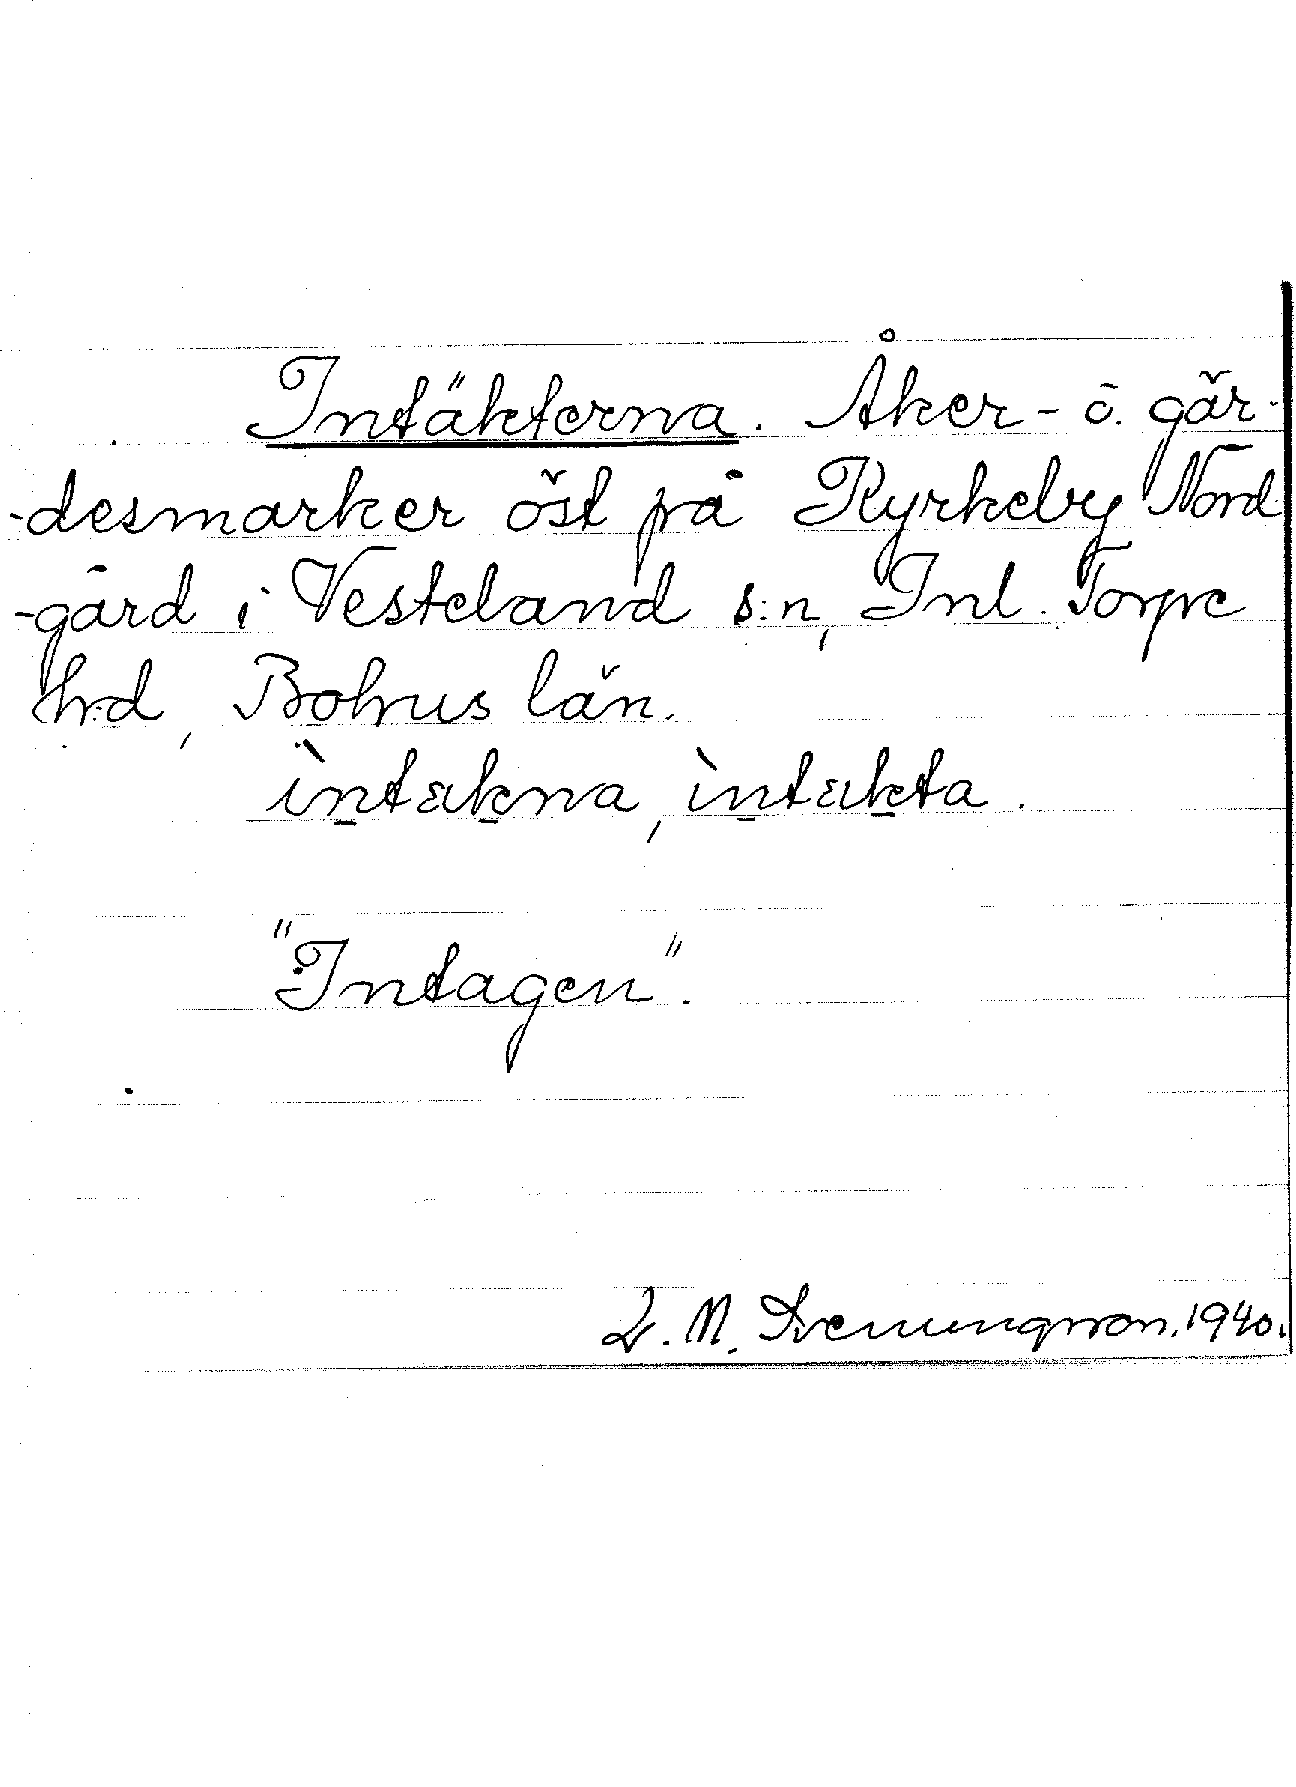 Intäkterna. Åker- o. gär-
-desmarker öst på Kyrkeby Nord-
-gård i Vesteland s:n, Inl. Torpe
h:d, Bohus län.
ìntækna, ìntækta.
"Intagen".
L. N. Svenungsson. 1940.